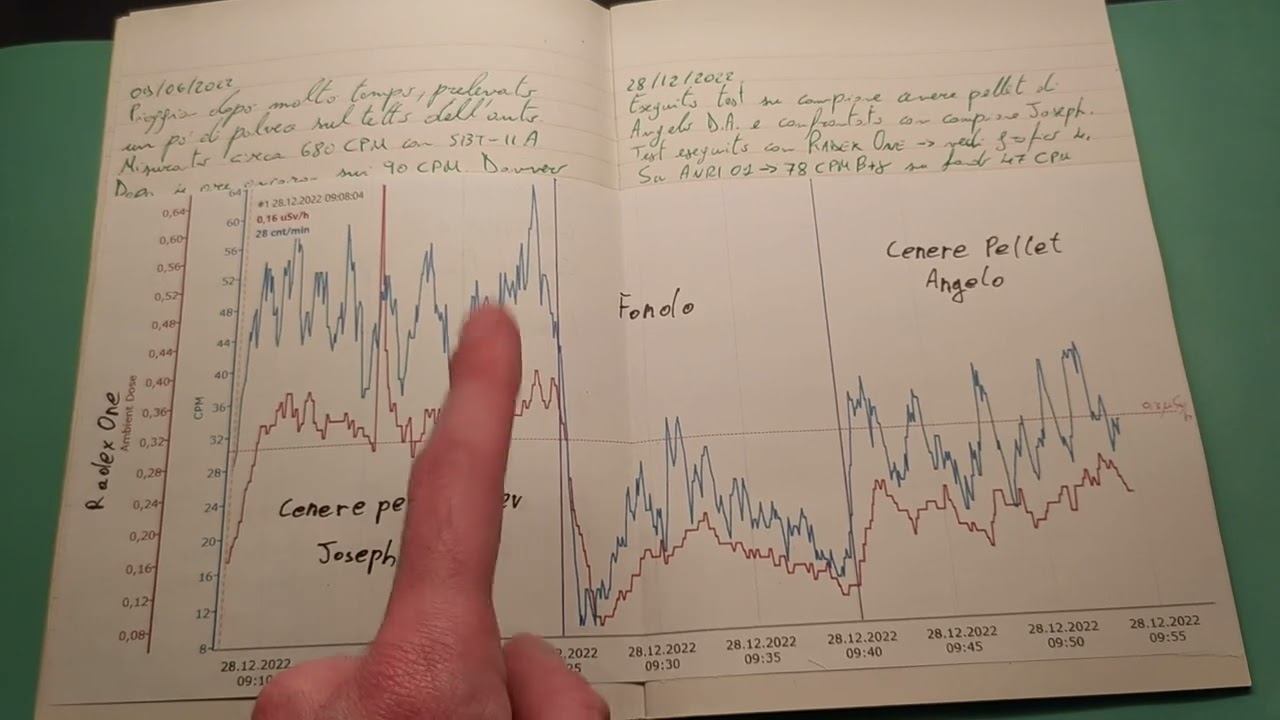 09/06/2022
Pioggia dopo molto tempo, prelevato
un po' di polvere sul tetto dell'auto.
Misurato circa 680 CPM con SBT-11A
Dopo 90 CPM.
28/12/2022
Eseguito test su campione cenere pellet di
Angelo D.A. e confrontato con campione Joseph.
Test eseguito con RADEX ONE → vedi grafico
Su ANRI 01 → 78 CPM B+γ su fondo 47 CPM
#1 28.12.2022 09:08:04
0,16 uSv/h
28 cnt/min
Radex One
Ambient Dose
0,64
0,60
0,56
0,52
0,48
0,44
0,40
0,36
0,32
0,28
0,24
0,20
0,16
0,12
0,08
CPM
64
60
56
52
48
44
40
36
32
28
24
20
16
12
8
Cenere pe
Joseph
Fondo
Cenere Pellet
Angelo
28.12.2022
09:10
28.12.2022
09:30
28.12.2022
09:35
28.12.2022
09:40
28.12.2022
09:45
28.12.2022
09:50
28.12.2022
09:55